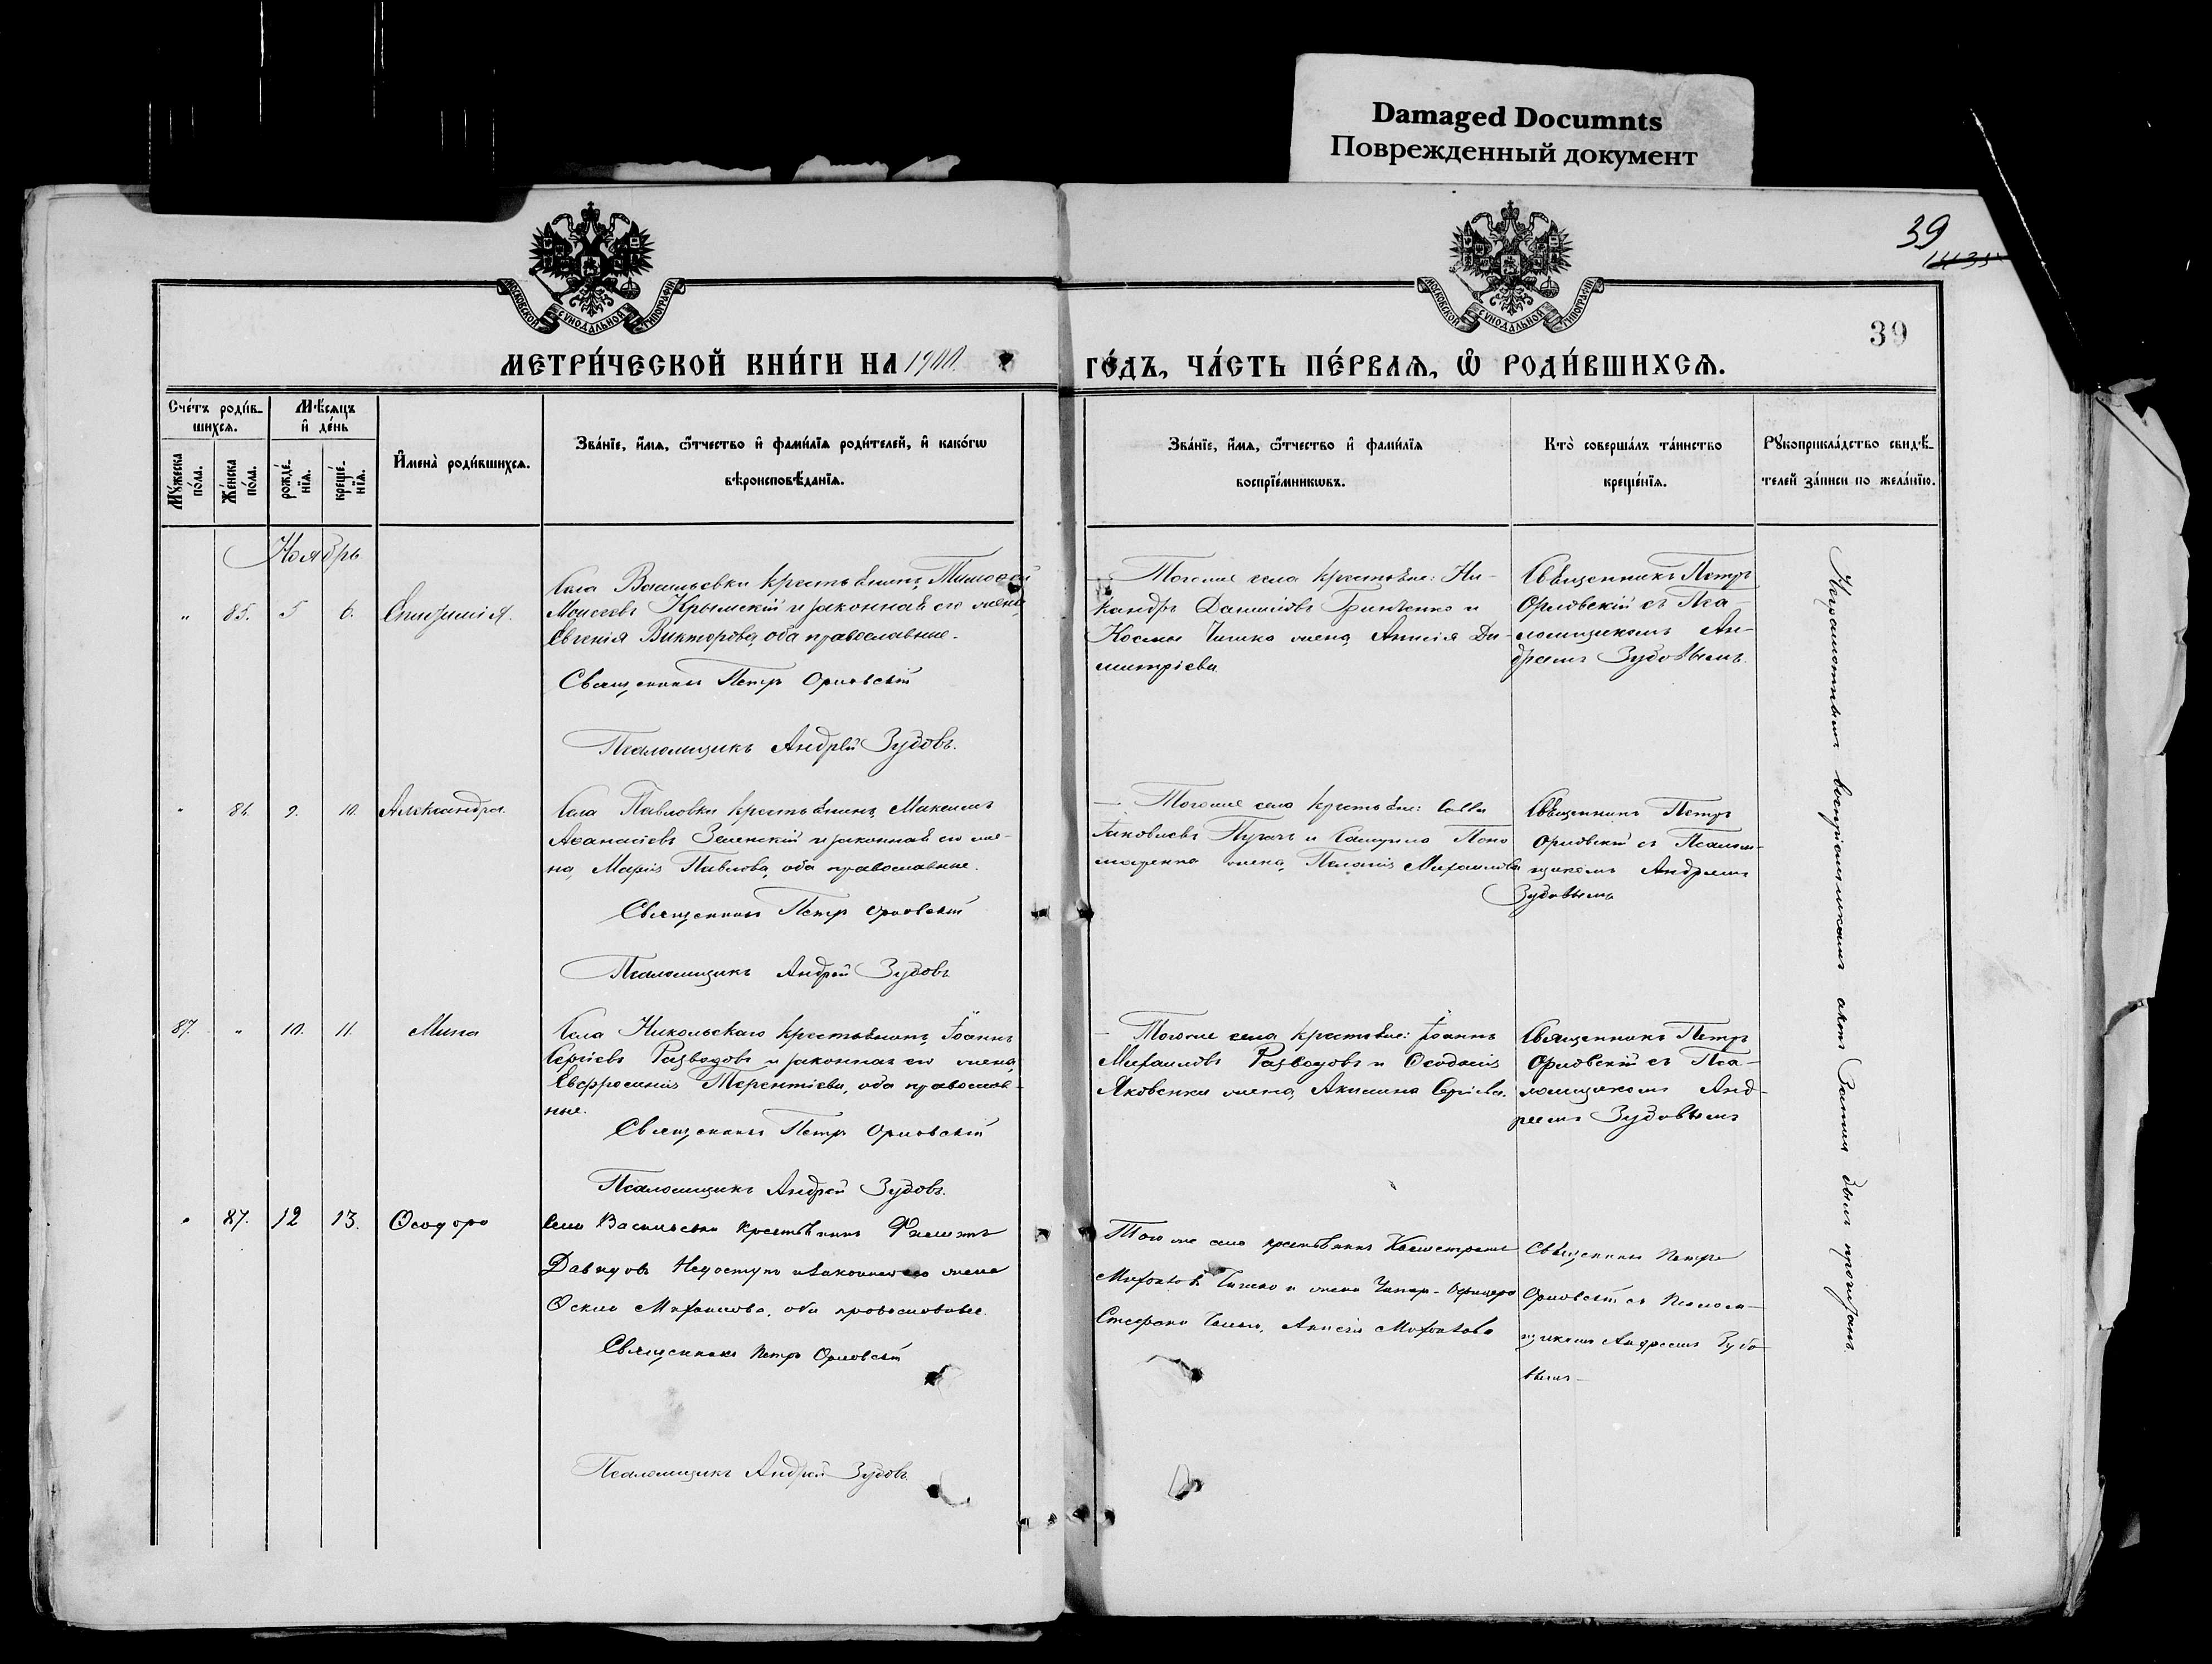 Damaged Documnts
Поврежденный документ
39
39
МОСКОВСКОЙ СѴНОДАЛЬНОЙ ТИПОГРАФІИ
МОСКОВСКОЙ СѴНОДАЛЬНОЙ ТИПОГРАФІИ
МЕТРИ́ЧЕСКОЙ КНИ́ГИ НА 1900.
ГО́ДЪ, ЧА́СТЬ ПЕ́РВАѦ, Ѽ РОДИ́ВШИХСѦ.
Сче́тъ роди́в-
шихсѧ.
Мѣ́сѧцъ
и҆ де́нь
Мꙋ́жеска
по́ла.
Же́нска
по́ла.
рожде́-
нїѧ.
креще́-
нїѧ.
И҆мена̀ роди́вшихсѧ.
Зва́нїе, и҆́мѧ, ѻ҆́тчество и҆ фами́лїѧ роди́телей, и҆ како́гѡ
вѣроисповѣ́данїѧ.
Зва́нїе, и҆́мѧ, ѻ҆́тчество и҆ фами́лїѧ
воспрїе́мникѡвъ.
Кто̀ соверша́лъ та́инство
креще́нїѧ.
Рꙋкоприкла́дство свидѣ́-
телей за́писи по жела́нїю.
Ноябрь
„ 85. 5 6.
Села Васильевки крестьянинъ Тимоѳей
Моисеевъ Крымскій и законная его жена
Евгенія Викторова, оба православные.
Священникъ Петръ Орловскій
Псаломщикъ Андрей Зубовъ.
Тогоже села крестьяне: Ни-
кандръ Даниловъ Гринченко и
Космы Чишко жена, Анисія Ди-
митріева
Священникъ Петръ
Орловскій съ Пса-
ломщикомъ Ан-
дреемъ Зубовымъ.
„ 86. 9. 10. Александра.
Села Павловки крестьянинъ Максимъ
Аѳанасіевъ Зеленскій и законная его же-
на, Марія Павлова, оба православные.
Священникъ Петръ Орловскій
Псаломщикъ Андрей Зубовъ
Тогоже села крестьяне: Савва
Іаковлевъ Пугачъ и Поно
маренко жена, Пелагія Михаилова
Священникъ Петръ
Орловскій съ Псалом-
щикомъ Андреемъ
Зубовымъ
87. „ 10. 11. Мина
Села Никольскаго крестьянинъ Іоаннъ
Сергіевъ Разводовъ и законная его жена,
Евфросинія Терентіева, оба православ-
ные.
Священникъ Петръ Орловскій
Псаломщикъ Андрей Зубовъ.
Тогоже села крестьяне: Іоаннъ
Михаиловъ Разводовъ и Ѳеодосія
Яковенки жена, Акилина Сергіева.
Священникъ Петръ
Орловскій съ Пса-
ломщикомъ Анд-
реемъ Зубовымъ
„ 87. 12 13. Ѳеодора
Села Васильевки крестьянинъ Филиппъ
Давидовъ Недоступъ и законная его жена
Ѳекла Михаилова, оба православные.
Священникъ Петръ Орловскій
Псаломщикъ Андрей Зубовъ.
Тогоже села крестьянинъ Калистратъ
Чишко и жена Унтер-Офицера
Стефана Анисія
Священникъ Петръ
Орловскій съ Псалом-
щикомъ Андреемъ Зубо-
вымъ
Неграмотнымъ воспріемникамъ актъ Записи былъ прочитанъ.